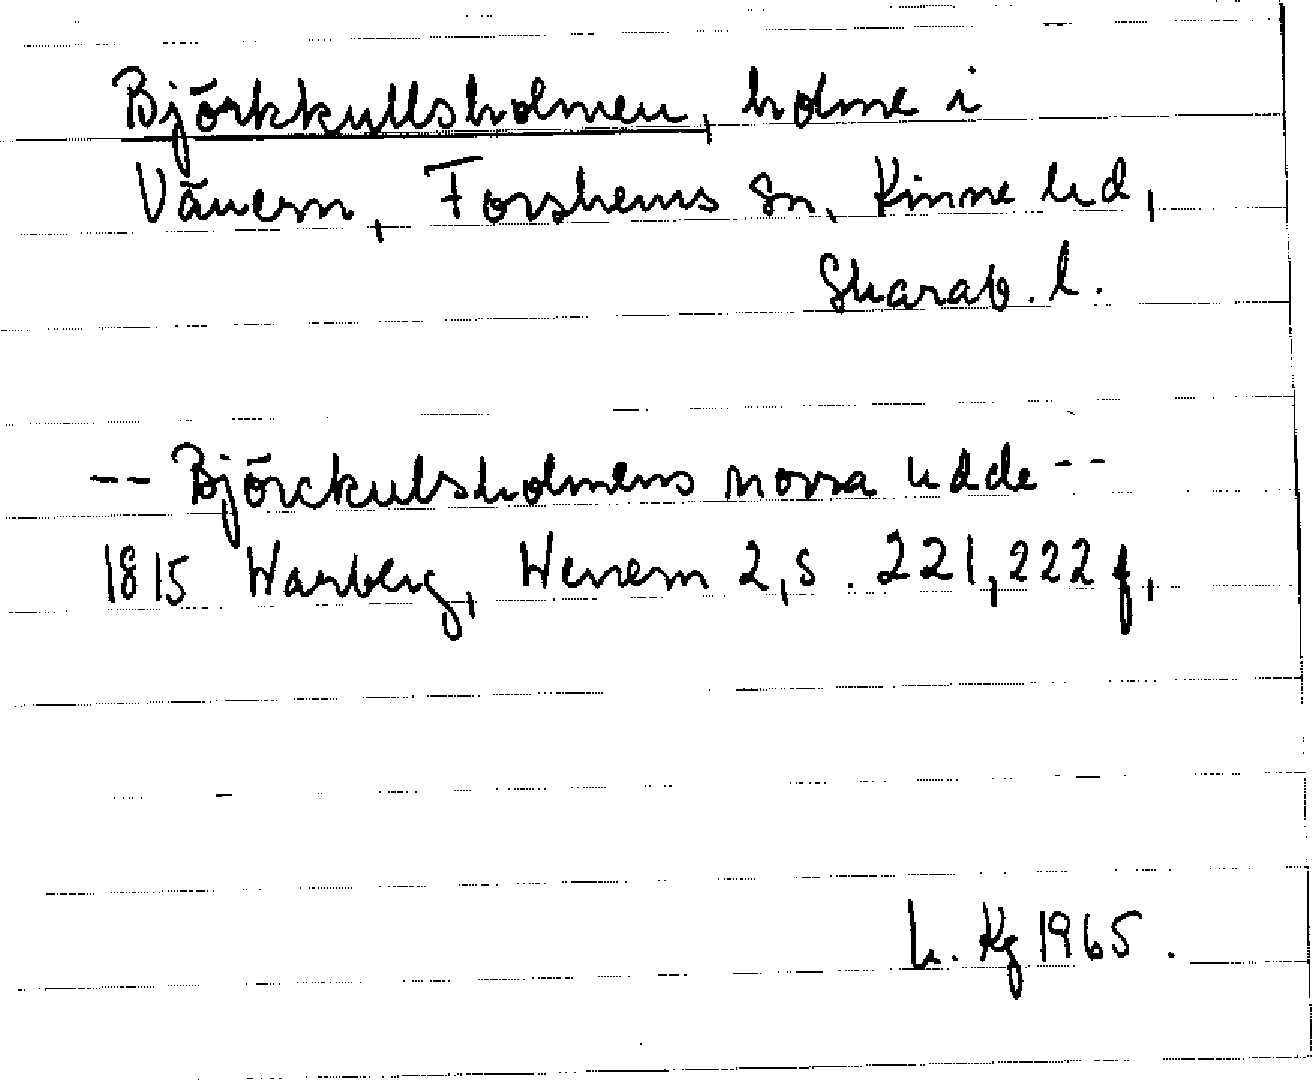 Björkkullsholmen, holme i
Vänern, Forshems sn, Kinne hd,
Skarab. l.
-- Björckulsholmens norra udde --
1815 Warberg, Wenern 2, s. 221, 222 f.
L. Kg 1965.